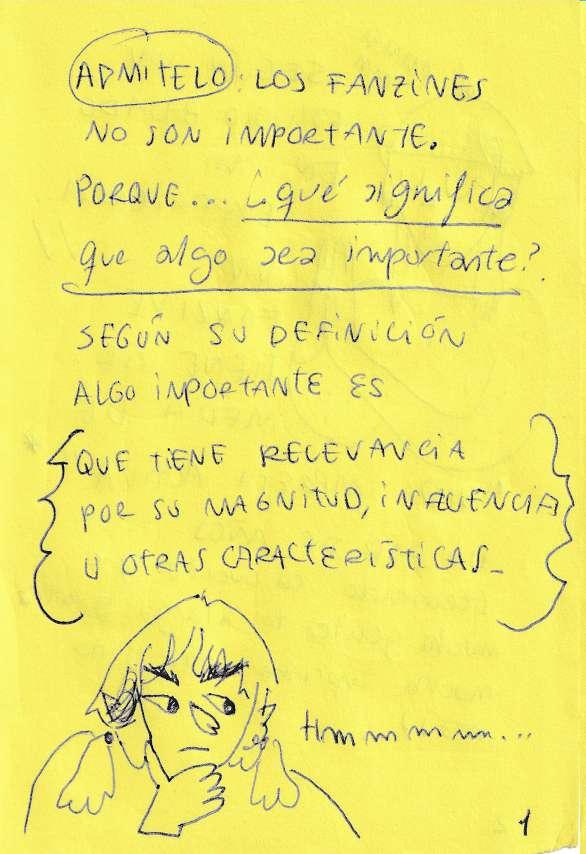 ADMITELO: LOS FANZINES
NO SON IMPORTANTE.
PORQUE... ¿qué significa
que algo sea importante?
SEGÚN SU DEFINICIÓN
ALGO INPORTANTE ES
QUE TIENE RELEVANCIA
POR SU MAGNITUD, INFLUENCIA
U OTRAS CARACTERÍSTICAS_
Hmmmmm...
1